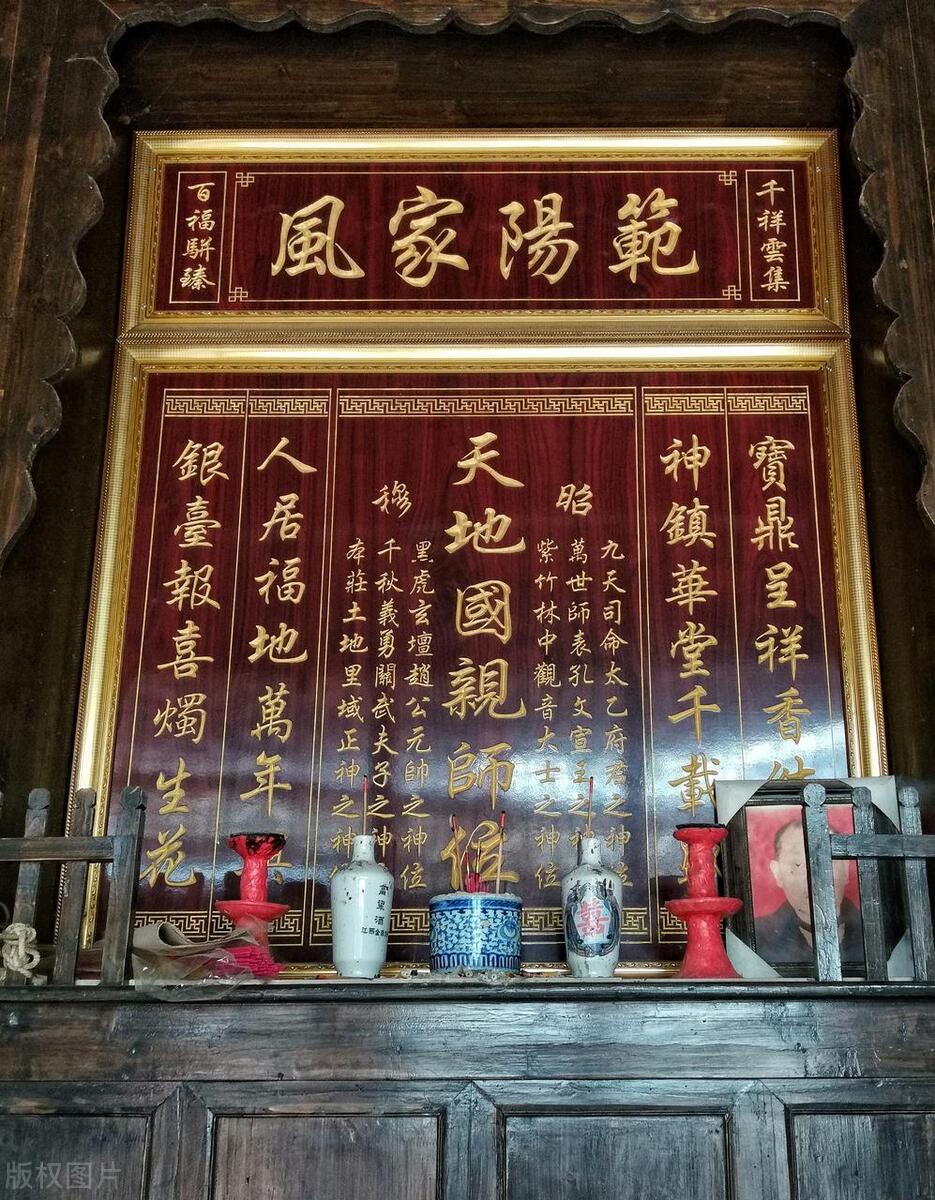 千祥雲集
範陽家風
百福駢臻
寶鼎呈祥香
神鎮華堂千載
昭
九天司命太乙府君之神位
萬世師表孔文宣王之神
紫竹林中觀音大士之神位
天地國親師位
穆
黑虎玄壇趙公元帥之神位
千秋義勇關武夫子之神
本莊土地里域正神之神
人居福地萬年
銀臺報喜燭生花
酒
囍
版权图片